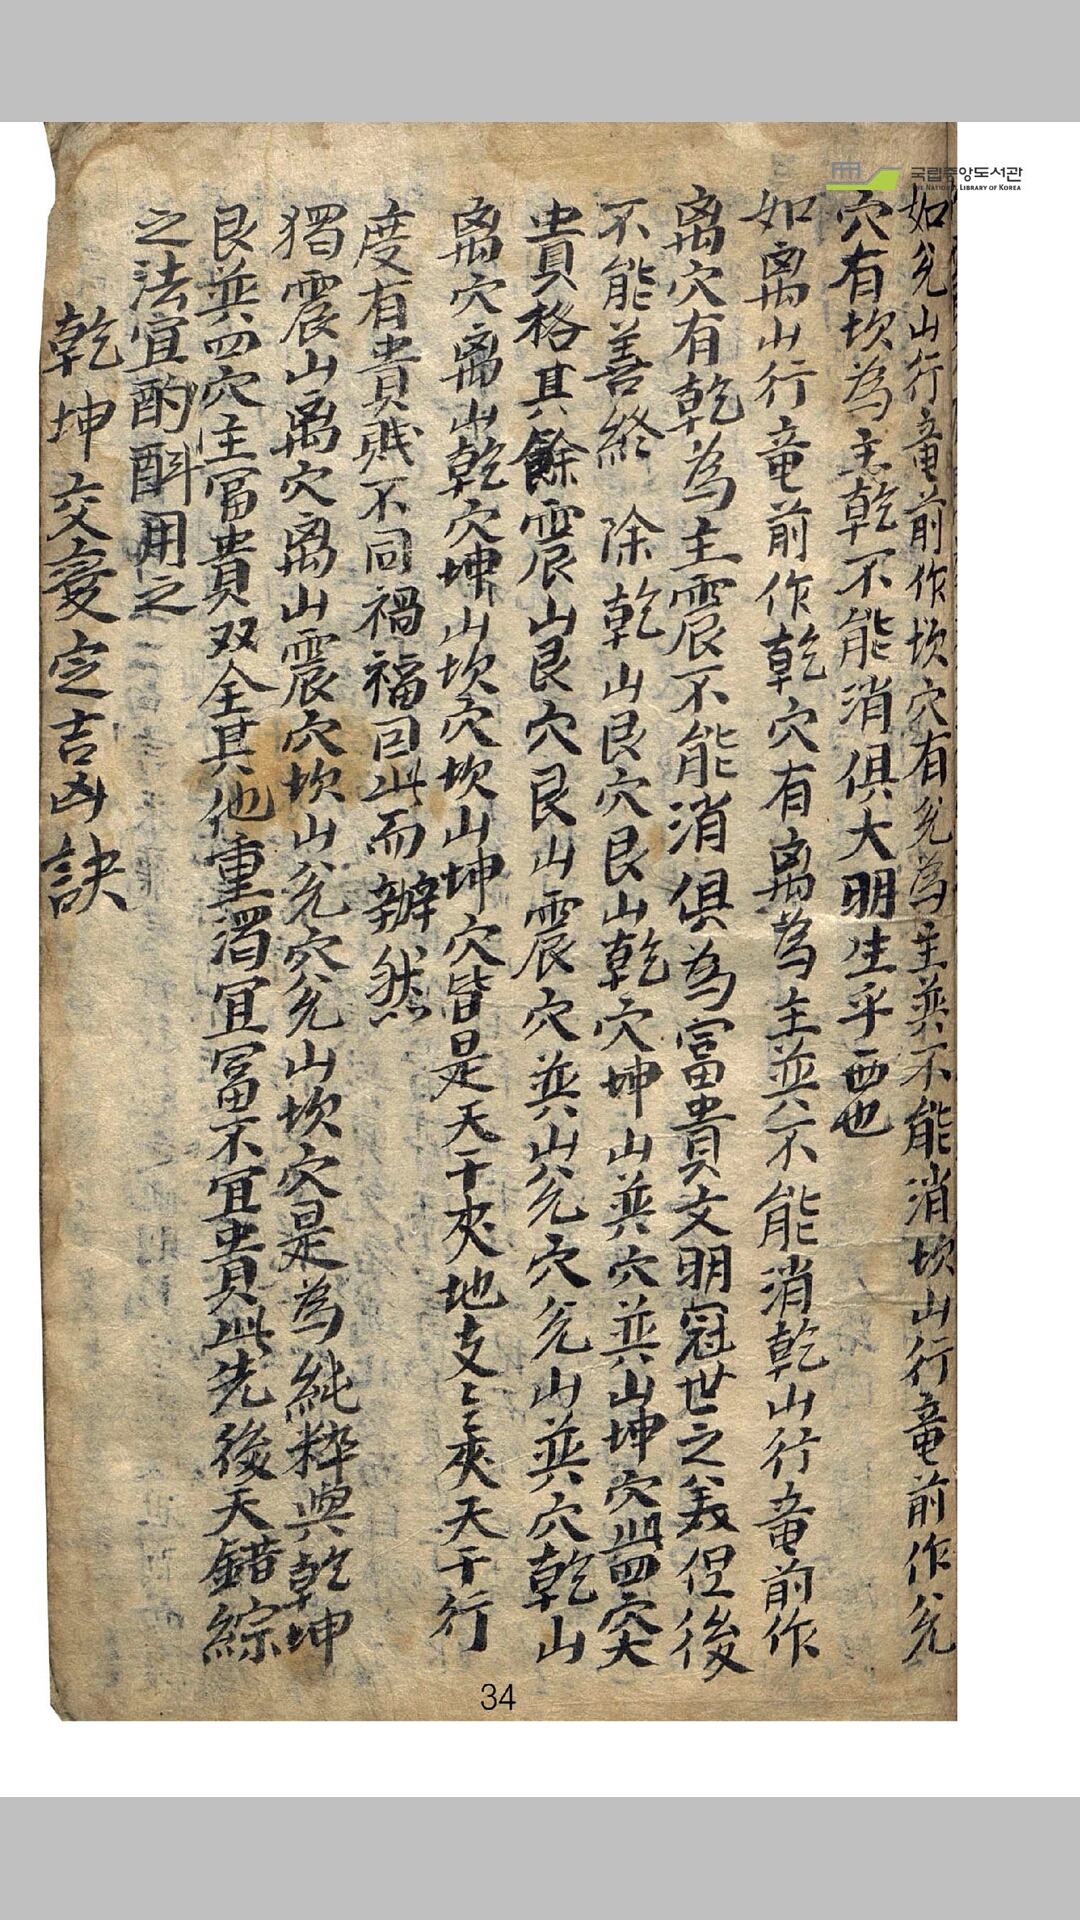 국립중앙도서관
THE NATIONAL LIBRARY OF KOREA
如兊山行竜前作坎穴有兊為主並不能消坎山行竜前作兊
穴有坎為主乾不能消俱大明生乎西也
如离山行竜前作乾穴有离為主並不能消乾山行竜前作
离穴有乾為主震不能消俱為富貴文明冠世之義但後
不能善終 除乾山艮穴艮山乾穴坤山巽穴巽山坤穴此四穴大
貴格其餘震山艮穴艮山震穴巽山兊穴兊山巽穴乾山
离穴离山乾穴坤山坎穴坎山坤穴皆是天干夾地支〻夾天干行
度有貴賎不同禍福因此而辦然
獨震山离穴离山震穴坎山兊穴兊山坎穴是為純粹與乾坤
艮巽四穴主冨貴双全其他重濁冝冨不冝貴此先後天錯綜
之法宜酌斟用之
乾坤交変定吉凶訣
34